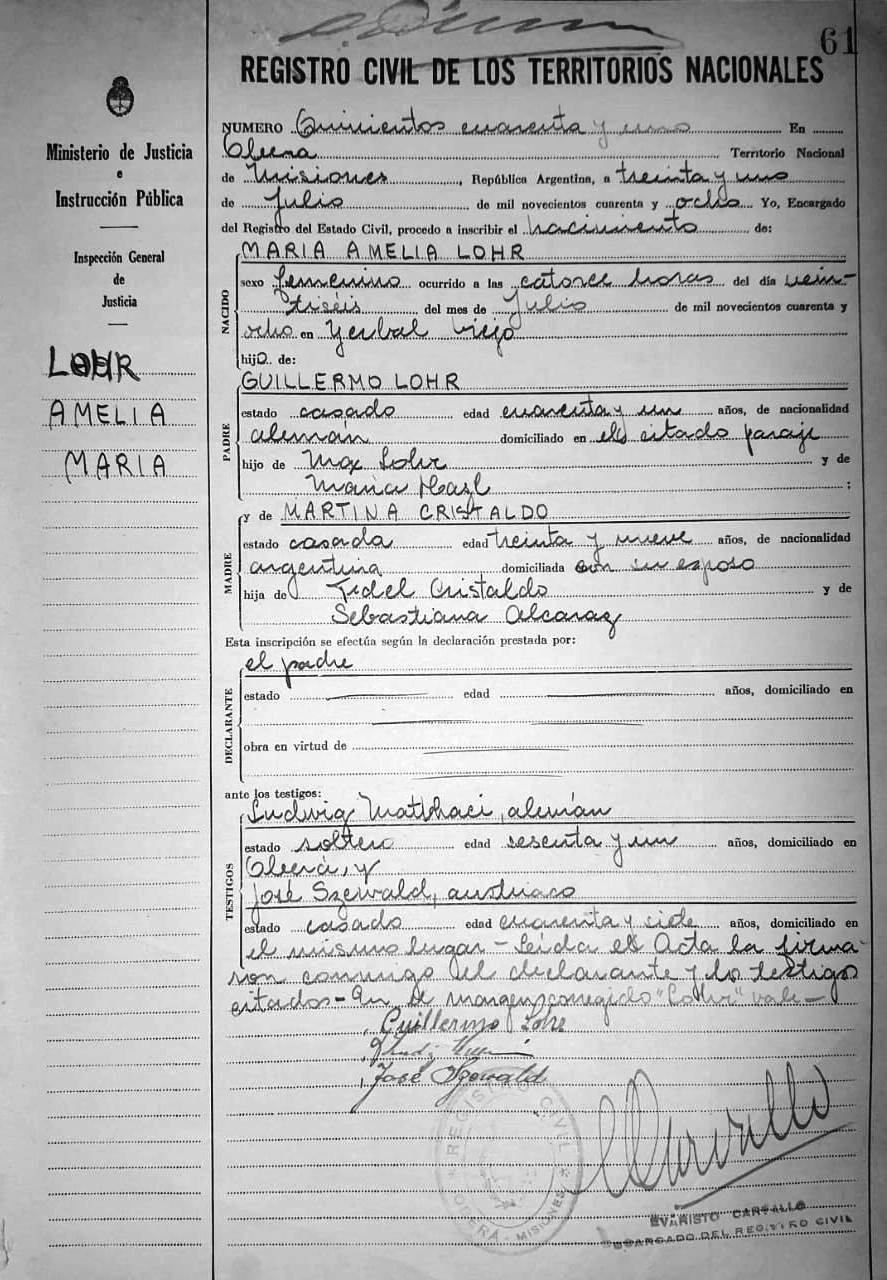 61
REGISTRO CIVIL DE LOS TERRITORIOS NACIONALES
Ministerio de Justicia
e
Instrucción Pública
Inspección General
de
Justicia
LOHR
AMELIA
MARIA
NUMERO Quinientos cuarenta y uno En
Obera Territorio Nacional
de Misiones, República Argentina, a treinta y uno
de Julio de mil novecientos cuarenta y ocho Yo, Encargado
del Registro del Estado Civil, procedo a inscribir el nacimiento de:
MARIA AMELIA LOHR
NACIDO
sexo femenino ocurrido a las catorce horas del día vein-
tiséis del mes de Julio de mil novecientos cuarenta y
ocho en Yerbal Viejo
hijO de:
GUILLERMO LOHR
PADRE
estado casado edad cuarenta y un años, de nacionalidad
alemán domiciliado en el citado paraje
hijo de Max Lohr y de
Maria ;
y de MARTINA CRISTALDO
MADRE
estado casada edad treinta y nueve años, de nacionalidad
argentina domiciliada con su esposo
hija de Fidel Cristaldo y de
Sebastiana Alcaraz
Esta inscripción se efectúa según la declaración prestada por:
el padre
DECLARANTE
estado edad años, domiciliado en
obra en virtud de
ante los testigos:
Ludwig alemán
TESTIGOS
estado soltero edad sesenta y un años, domiciliado en
Oberá, y
José Szewald, austriaco
estado casado edad cuarenta y siete años, domiciliado en
el mismo lugar - Leida el Acta la firma-
ron conmigo el declarante y los testigos
citados - En el margen corregido "Lohr" vale -
Guillermo Lohr
José Szewald
REGISTRO CIVIL
OBERA - MISIONES
EVARISTO CARVALLO
ENCARGADO DEL REGISTRO CIVIL